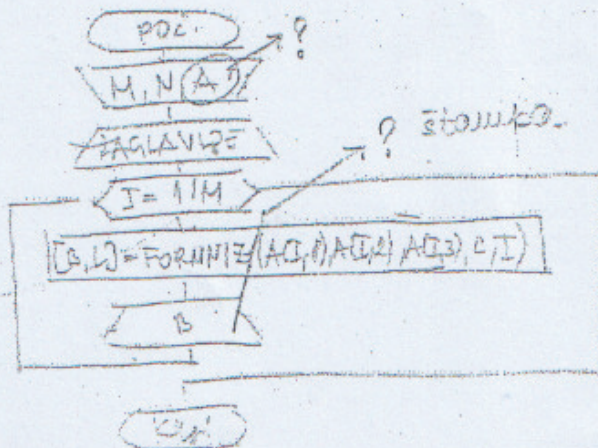 POČ.
?
M, N, A
ZAGLAVLJE
? štampa
I = 1, M
[B, L] = FORMNIZ(A(I,1), A(I,2), A(I,3), C, I)
B